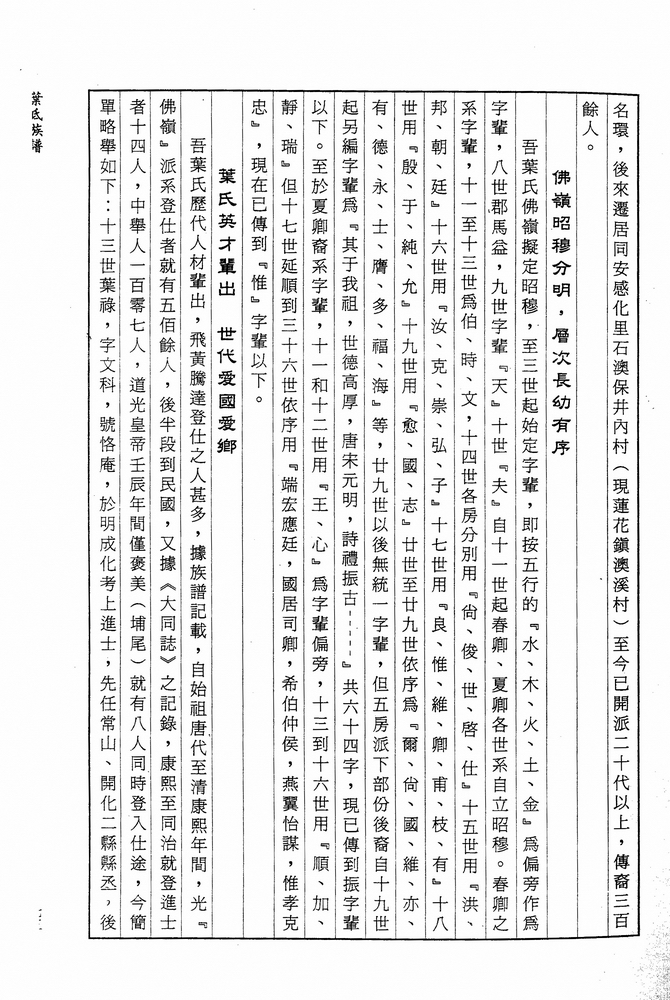 名環，後來遷居同安感化里石澳保井內村（現蓮花鎮澳溪村）至今已開派二十代以上，傳裔三百
餘人。
佛嶺昭穆分明，層次長幼有序
吾葉氏佛嶺擬定昭穆，至三世起始定字輩，即按五行的『水、木、火、土、金』爲偏旁作爲
字輩，八世郡馬益，九世字輩『天』十世『夫』自十一世起春卿、夏卿各世系自立昭穆。春卿之
系字輩，十一至十三世爲伯、時、文，十四世各房分別用『尙、俊、世、啓、仕』十五世用『洪、
邦、朝、廷』十六世用『汝、克、崇、弘、子』十七世用『良、惟、維、卿、甫、枝、有』十八
世用『殷、于、純、允』十九世用『愈、國、志』廿世至廿九世依序爲『爾、尙、國、維、亦、
有、德、永、士、膺、多、福、海』等，廿九世以後無統一字輩，但五房派下部份後裔自十九世
起另編字輩爲『其于我祖，世德高厚，唐宋元明，詩禮振古-----』共六十四字，現已傳到振字輩
以下。至於夏卿裔系字輩，十一和十二世用『王、心』爲字輩偏旁，十三到十六世用『順、加、
靜、瑞』但十七世延順到三十六世依序用『端宏應廷，國居司卿，希伯仲侯，燕翼怡謀，惟孝克
忠』，現在已傳到『惟』字輩以下。
葉氏英才輩出　世代愛國愛鄉
吾葉氏歷代人材輩出，飛黃騰達登仕之人甚多，據族譜記載，自始祖唐代至清康熙年間，光『
佛嶺』派系登仕者就有五佰餘人，後半段到民國，又據《大同誌》之記錄，康熙至同治就登進士
者十四人，中舉人一百零七人，道光皇帝壬辰年間僅褒美（埔尾）就有八人同時登入仕途，今簡
單略舉如下：十三世葉祿，字文科，號恪庵，於明成化考上進士，先任常山、開化二縣縣丞，後
葉氏族譜